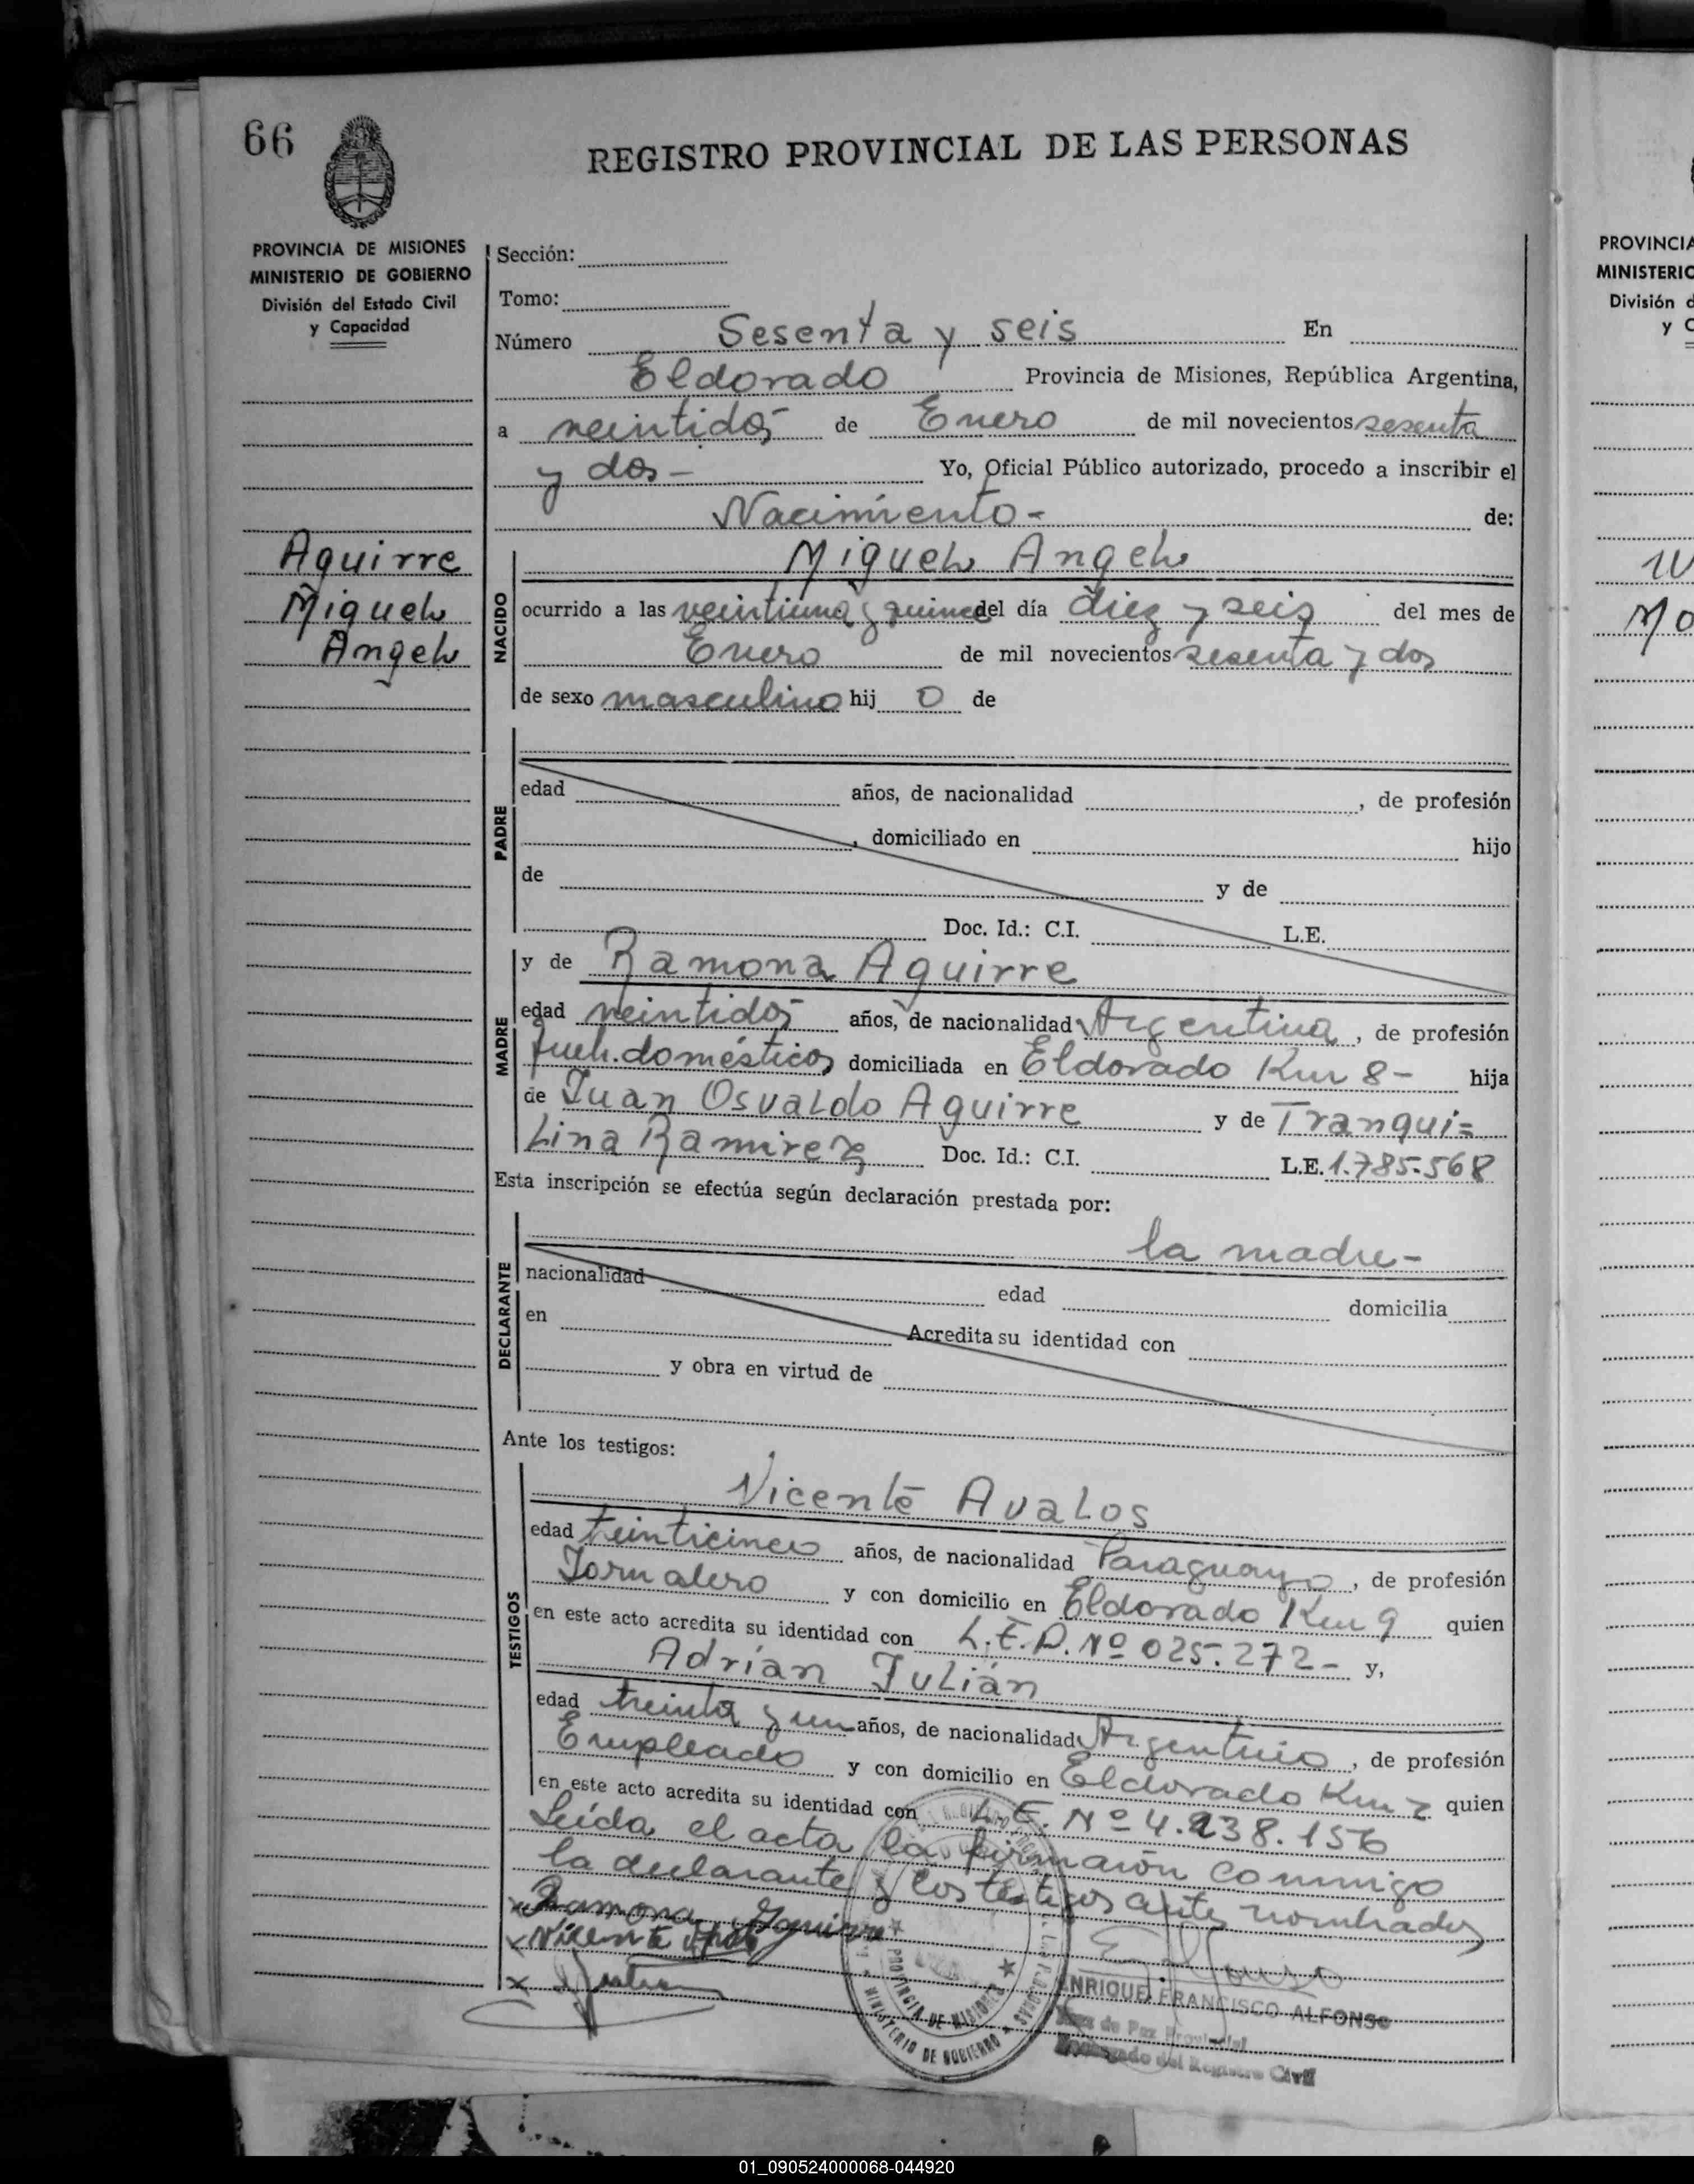 66
REGISTRO PROVINCIAL DE LAS PERSONAS
PROVINCIA DE MISIONES
MINISTERIO DE GOBIERNO
División del Estado Civil
y Capacidad
Sección:
Tomo:
Número Sesenta y seis En
Eldorado Provincia de Misiones, República Argentina,
a veintidós de Enero de mil novecientos sesenta
y dos - Yo, Oficial Público autorizado, procedo a inscribir el
Nacimiento - de:
Aguirre
Miguel
Angel
NACIDO
Miguel Angel
ocurrido a las veintiuna y quince del día diez y seis del mes de
Enero de mil novecientos sesenta y dos
de sexo masculino hij o de
PADRE
edad años, de nacionalidad , de profesión
, domiciliado en hijo
de y de
Doc. Id.: C.I. L.E.
MADRE
y de Ramona Aguirre
edad veintidós años, de nacionalidad Argentina, de profesión
domésticos domiciliada en Eldorado Km 8 - hija
de Juan Osvaldo Aguirre y de Tranqui=
lina Ramirez Doc. Id.: C.I. L.E. 1.785.568
Esta inscripción se efectúa según declaración prestada por:
DECLARANTE
la madre -
nacionalidad edad domicilia
en Acredita su identidad con
y obra en virtud de
Ante los testigos:
TESTIGOS
Vicente Avalos
edad veinticinco años, de nacionalidad Paraguayo, de profesión
Jornalero y con domicilio en Eldorado Km 9 quien
en este acto acredita su identidad con Nº 025.272 - y,
Adrían Julián
edad treinta y un años, de nacionalidad Argentino, de profesión
Empleado y con domicilio en Eldorado Km 2 quien
en este acto acredita su identidad con L.E. Nº 4.238.156
Leída el acta la firmarón conmigo
la declarante y los testigos antes nombrados
Ramona Aguirre
Vicente
PROVINCIA DE MISIONES
MINISTERIO DE GOBIERNO
ENRIQUE FRANCISCO ALFONSO
Juez de Paz Provincial
Encargado del Registro Civil
PROVINCIA
MINISTERIO
División d
y C
01_090524000068-044920